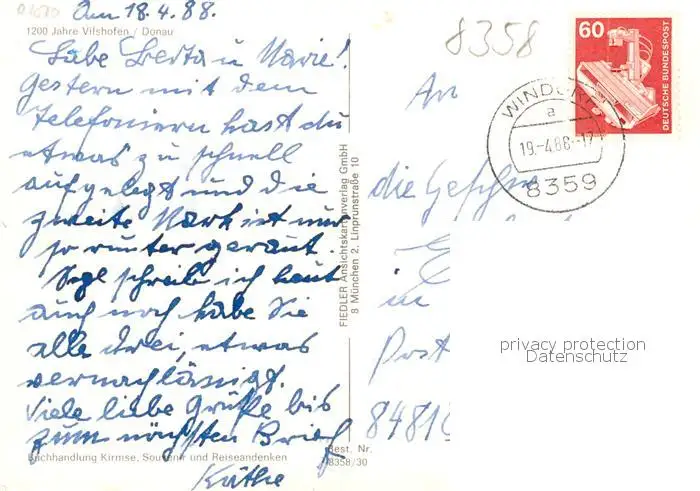 Am 18.4.88.
1200 Jahre Vilshofen / Donau
Liebe Berta u Marie!
Gestern mit dem
Telefonieren hast du
etwas zu schnell
aufgelegt und die
zweite Mark ist nur
so runter geraut.
schreib ich heut
auch noch habe Sie
alle drei, etwas
vernachlässigt.
Viele liebe Grüße bis
zum nächsten Brief
Käthe
Buchhandlung Kirmse, Souvenir und Reiseandenken
Best. Nr.
8358/30
FIEDLER Ansichtskartenverlag GmbH
8 München 2, Linprunstraße 10
8358
60
DEUTSCHE BUNDESPOST
a
19.-4.88-17
8359
An
die
in
Post
8481
privacy protection
Datenschutz